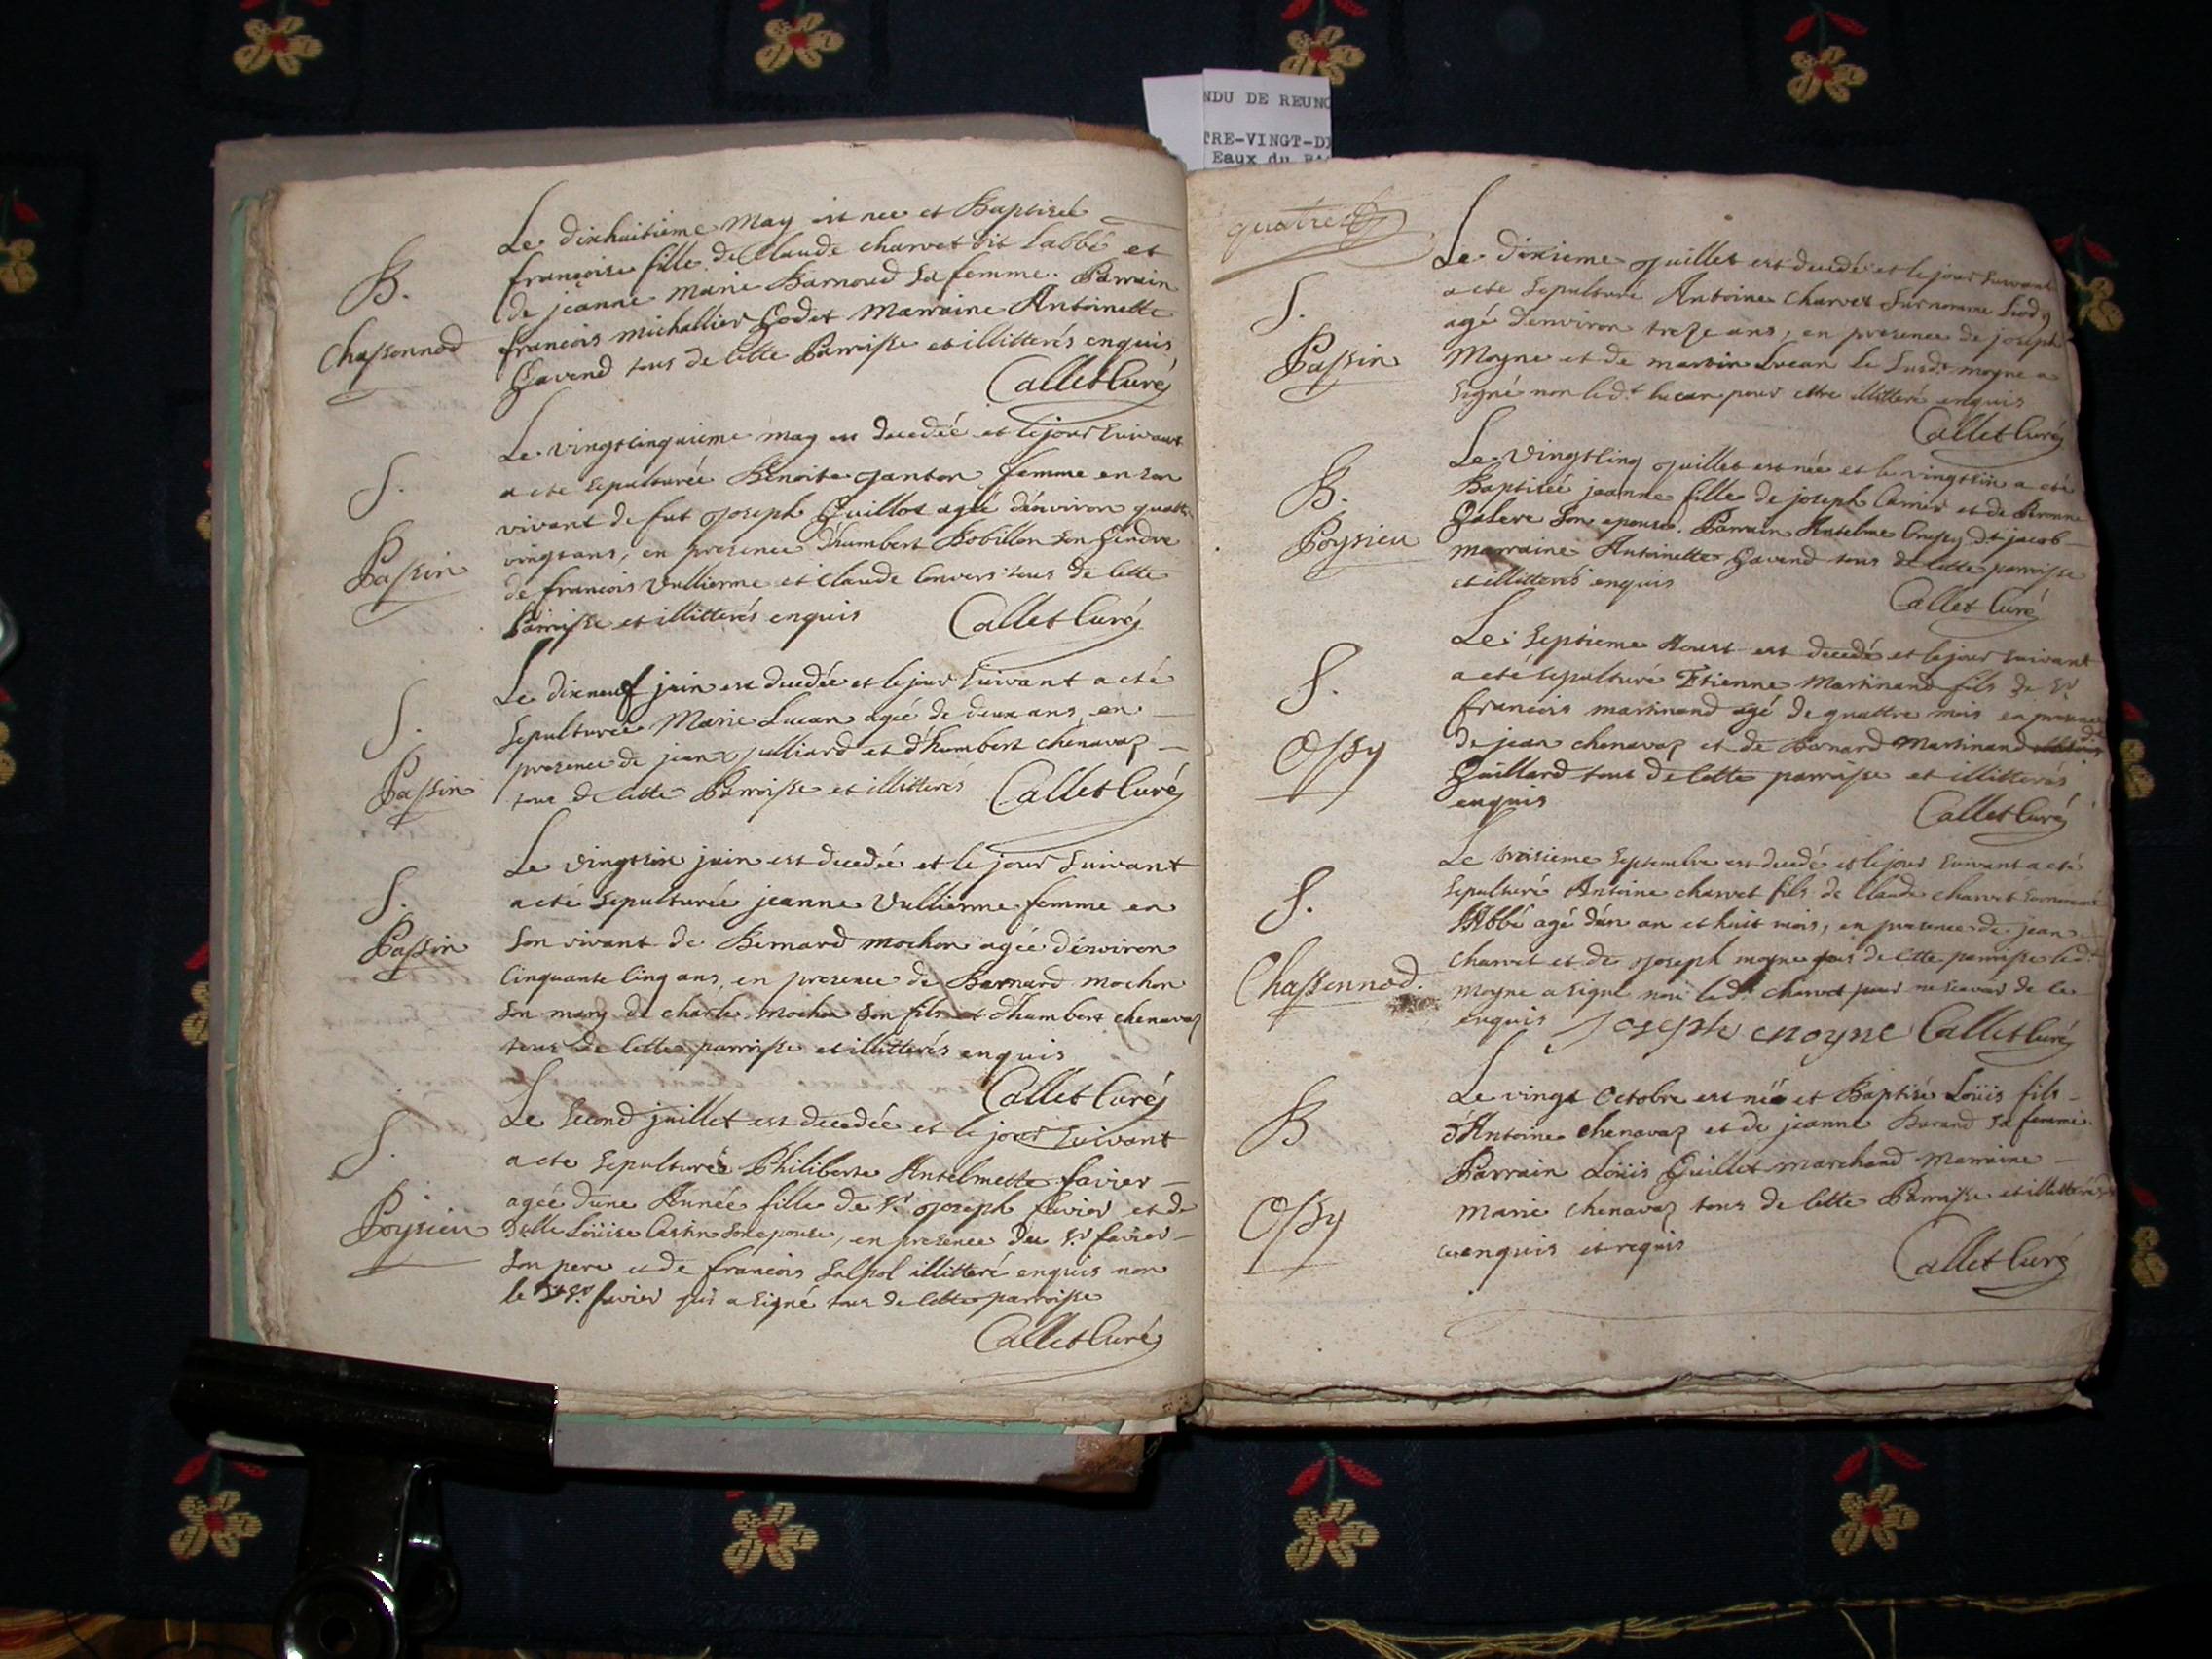 NDU DE REUNO
TRE-VINGT-DI
Eaux du
Le dixhuitieme May est nee et Baptisée
françoise fille de Claude charvet dit Labbé et
de jeanne marie Barnoud sa femme. Parrain
B.
françois michallier Godet Marraine Antoinette
Chassonnod
Gavend tous de cette Parroisse et illitterés enquis
Callet Curé
Le vingtcinquieme may est decedée et le jour suivant
S.
a eté sepulturée Benoite ganton femme en son
vivant de fut joseph Guillot agée d'environ quattre
vingt ans, en presence d'humbert Bobillon son Gendre
Passin
de françois Vullierme et Claude Convers tous de cette
Parroisse et illitterés enquis Callet Curé
Le dixneuf juin est decedée et le jour suivant a eté
S.
sepulturée Marie Lucan agée de deux ans, en
presence de jean julliard et d'humbert chenavaz
Passin
tous de cette Parroisse et illitterés Callet Curé
Le vingtsix juin est decedée et le jour suivant
S.
a eté sepulturée jeanne Vullierme femme en
Passin
son vivant de Bernard mochon agée d'environ
Cinquante cinq ans, en presence de Barnard mochon
son mary de charle mochon son fils et d'humbert chenavaz
tous de cette parroisse et illitterés enquis
Callet Curé
Le second juillet est decedée et le jour suivant
S.
a eté sepulturée Philiberte Antelmette favier
agée d'une Année fille de Sr joseph favier et de
Poysieu
Delle Loüise Castin son epouse, en presence du Sr favier
son pere et de francois Salpol illitteré enquis non
le favier qui a signé tous de cette parroisse
Callet Curé
quatre
Le dixieme juillet est decedé et le jour suivant
S.
a eté sepulturé Antoine Charvet surnommé
agé d'environ treize ans, en presence de joseph
Passin
Moyne et de martin Lucan le susdt moyne a
signé non led.t lucan pour etre illitteré enquis
Callet Curé
Le vingtcinq juillet est née et le vingtsix a eté
B.
Baptisée jeanne fille de joseph Carrier et de Peronne
Galere son epouse. Parrain Antelme dt jacob
Poysieu
marraine Antoinette Gavend tous de cette parroisse
et illitterés enquis
Callet Curé
Le septieme Aoust est decedé et le jour suivant
S.
a eté sepulturé Etienne Martinand fils de Sr
francois martinand agé de quattre mois en presence
Ossy
de jean chenavaz et de Bernard Martinand
Guillard tous de cette parroisse et illitterés
enquis
Callet Curé
Le troisieme Septembre est decedé et le jour suivant a eté
S.
sepulturé Antoine charvet fils de Claude charvet surnommé
l'Abbé agé d'un an et huit mois, en presence de jean
Chassennod.
charvet et de joseph moyne tous de cette parroisse led.t
moyne a signé non led.t charvet pour ne scavoir de ce
enquis joseph moyne Callet Curé
Le vingt Octobre est né et Baptisé Loüis fils
B
d'Antoine chenavaz et de jeanne Burand sa femme.
Parrain Loüis Guillet marchand Marraine
Ossy
Marie chenavaz tous de cette Parroisse et illitterés de
ce enquis et requis
Callet Curé